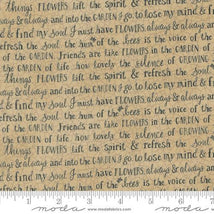 things. FLOWERS lift the Spirit & refresh the Soul
always & always and into the GARDEN I go to lose my mind &
& find my Soul I must have FLOWERS always & always and
refresh the Soul the hum of the bees is the voice of the
the GARDEN. Friends are like FLOWERS in the GARDEN
GARDEN of life how lovely the silence of GROWING
things. FLOWERS lift the Spirit & refresh the Soul
always & always and into the GARDEN I go to lose my mind &
& find my Soul I must have FLOWERS always & always and
refresh the Soul the hum of the bees is the voice of the
the GARDEN. Friends are like FLOWERS in the GARDEN
GARDEN of life how lovely the silence of GROWING
things. FLOWERS lift the Spirit & refresh the Soul
always & always and into the GARDEN I go to lose my mind &
& find my Soul I must have FLOWERS always & always
the hum of the bees is the voice of the
1 2 3 4 5 6
moda
www.modafabrics.com